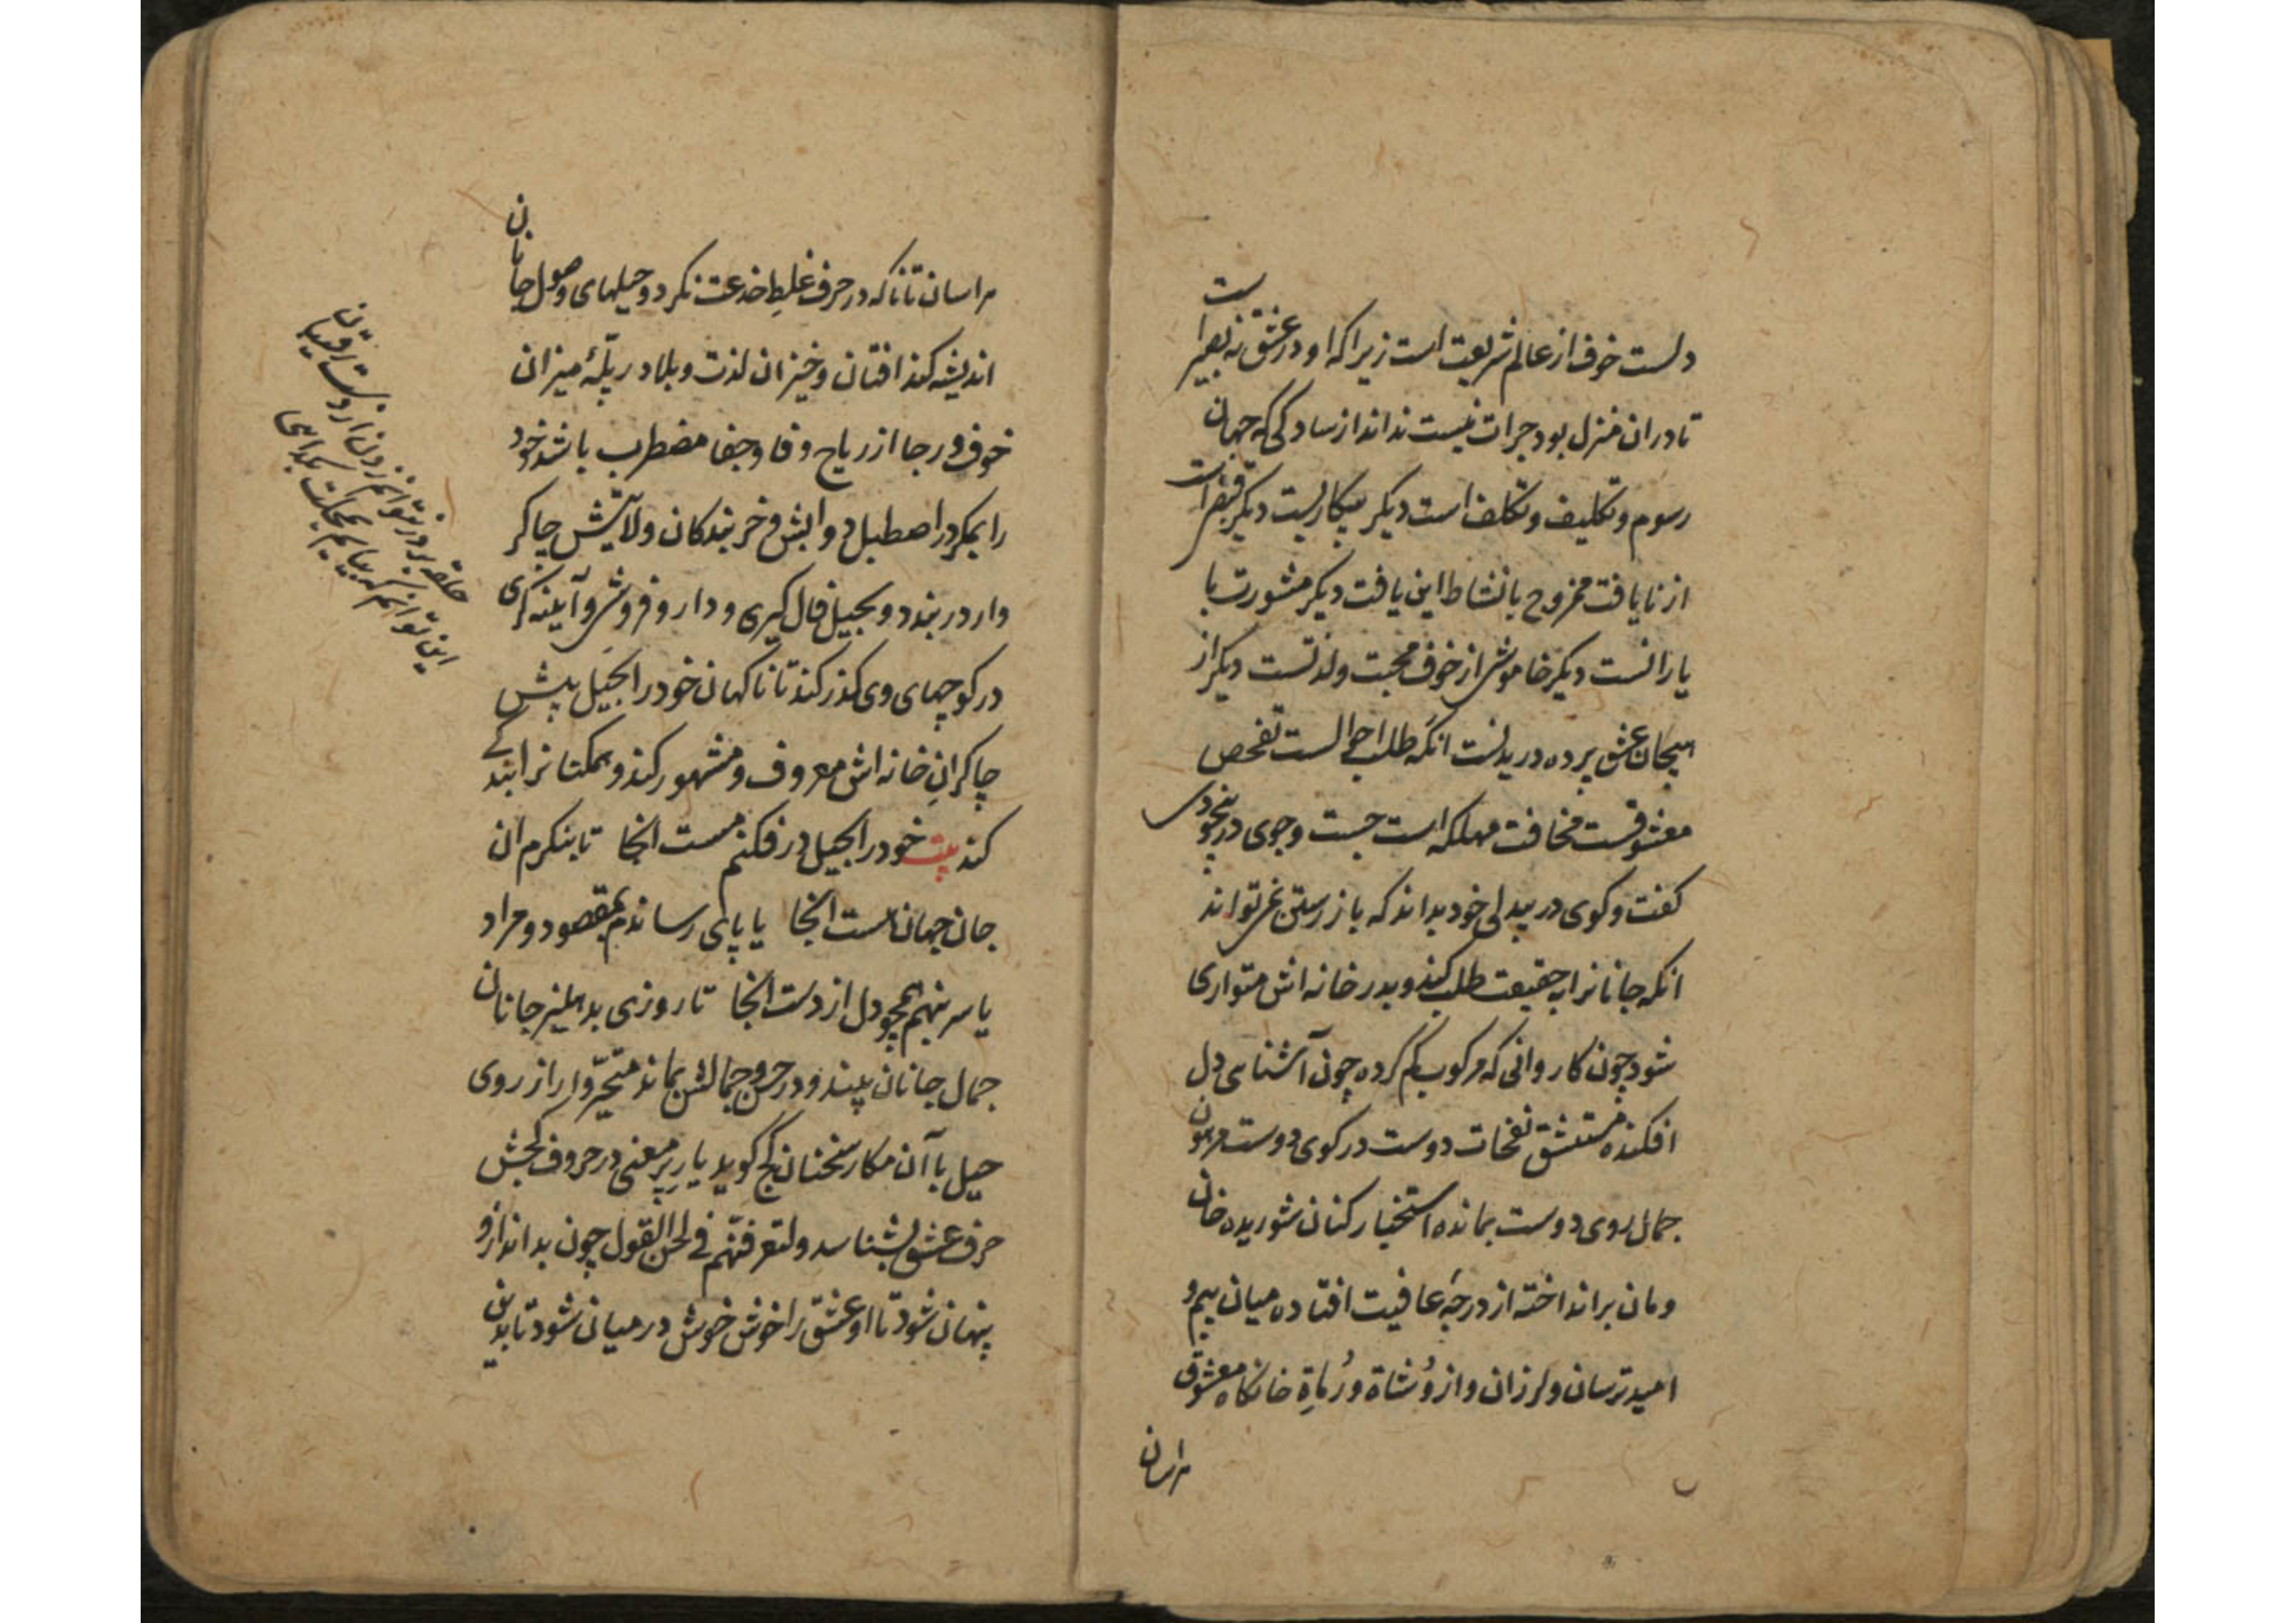 دلست خوف از عالم شریعت است زیرا که او در عشق نه بعبر است
تا دران منزل بود جرات نیست نداند از سادگی که جهان
رسوم و تکلیف و تکلف است دیگر بیکاریست دیگر قبض است
از نایافت ممزوج با نشاط این یافت دیگر مشورت با
یارانست دیگر خاموشی از خوف محبت ولذتست دیگر از
هیجان عشق پرده دریدنست انکه طلب احوالست تفحص
معشوقست مخافت مهلکه است جست وجوی در بیخودی
کفت و کوی در بیدلی خود بداند که باز رستن نمی تواند
انکه جانانرا بحقیقت طلب کند و بدر خانه اش متواری
شود چون کاروانی که مرکوب کم کرده چون آشنای دل
افکنده مستنشق نفحات دوست در کوی دوست مرهون
جمال روی دوست بمانده استخبار کنان شوریده خان
و مان برانداخته از درجهٔ عافیت افتاده میان بیم و
امید ترسان و لرزان و از وُشاة و رُماةِ خانکاه معشوق
هراسان
هراسان تا ناکه در حرف غلطِ خدعت نکرد و حیلهای وصول جانان
اندیشه کند افتان و خیزان لذت و بلا در پلّهٔ میزان
خوف و رجا از ریاح وفا و جفا مضطرب باشد خود
را بمکر در اصطبل دوابش و خربندکان ولایتش چاکر
وار در بندد و بحیل فال کیری و دارو فروشی و آیینه کری
در کوچهای وی کذر کند تا ناکهان خود را بحیل پیش
چاکرانِ خانه اش معروف و مشهور کند و همکنانرا بندکی
کند بیت خود را بحیل در فکنم مست انجا تا بنکرم ان
جان جهان هست انجا یا پای رساندم بمقصود و مراد
یا سر بنهم همچو دل از دست انجا تا روزی بدهلیز جانان
جمال جانان بیند و در حسن و جمالش بماند متحیّروار از روی
حیل با آن مکار سخنان کج کوید یار پر معنی در حروف کجش
حرف عشق بشناسد ولتعرفنّهم فی لحن القول چون بداند ازو
پنهان شود تا او عشق را خوش خوش در میان شود تا بدین
حلقه بر در نتوانم زدن از دست رقیبان
این توانم که بیایم بمحلت بکدایی